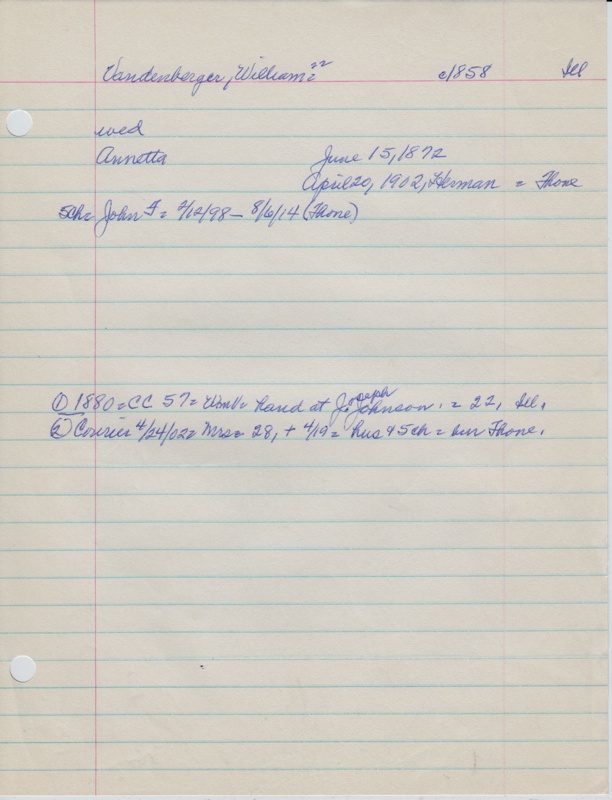 Vandenberger, William = 22 c1858 Ill
wed
Annetta June 15, 1872
April 20, 1902, Herman = Thone
5ch = John F = 2/12/98 - 8/6/14 (Thone)
① 1880 = CC 57 = WmV = hand at Joseph Johnson. = 22, Ill.
② Courier 4/24/02 = Mrs = 28, + 4/19 = hus & 5ch = bur Thone.